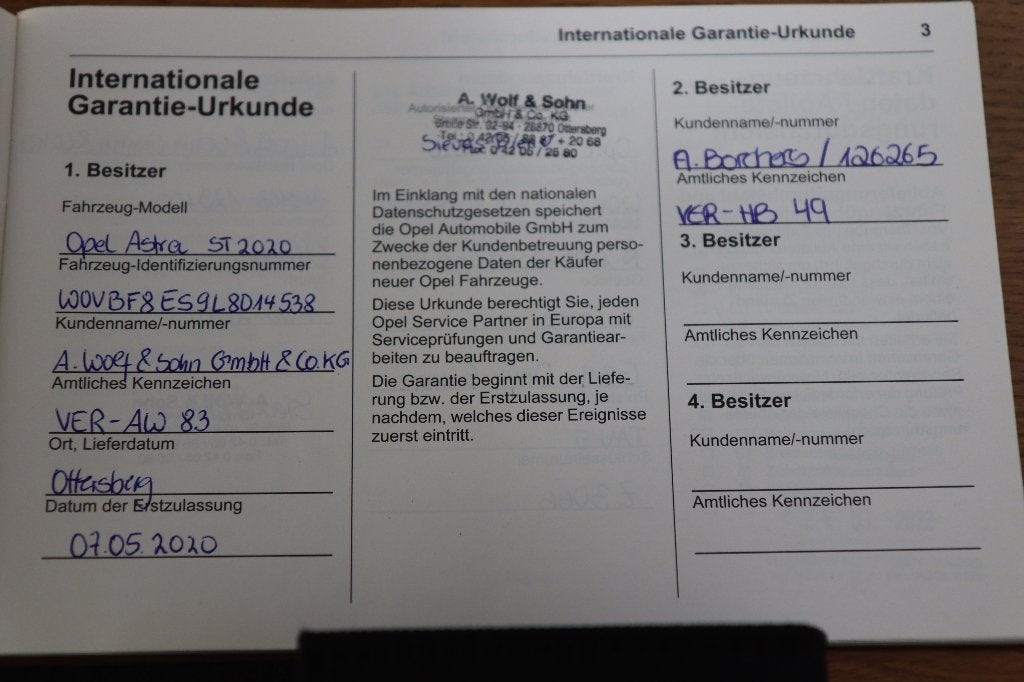 Internationale Garantie-Urkunde 3
Internationale
Garantie-Urkunde
1. Besitzer
Fahrzeug-Modell
Opel Astra ST 2020
Fahrzeug-Identifizierungsnummer
W0VBF8ES9L8014538
Kundenname/-nummer
A. Wolf & Sohn GmbH & Co. KG
Amtliches Kennzeichen
VER-AW 83
Ort, Lieferdatum
Ottersberg
Datum der Erstzulassung
07.05.2020
A. Wolf & Sohn
GmbH & Co. KG
Breite Str. 92-94 - 28870 Ottersberg
+ 20 68
Im Einklang mit den nationalen
Datenschutzgesetzen speichert
die Opel Automobile GmbH zum
Zwecke der Kundenbetreuung perso-
nenbezogene Daten der Käufer
neuer Opel Fahrzeuge.
Diese Urkunde berechtigt Sie, jeden
Opel Service Partner in Europa mit
Serviceprüfungen und Garantiear-
beiten zu beauftragen.
Die Garantie beginnt mit der Liefe-
rung bzw. der Erstzulassung, je
nachdem, welches dieser Ereignisse
zuerst eintritt.
2. Besitzer
Kundenname/-nummer
A. Borchers / 126265
Amtliches Kennzeichen
VER-HB 49
3. Besitzer
Kundenname/-nummer
Amtliches Kennzeichen
4. Besitzer
Kundenname/-nummer
Amtliches Kennzeichen